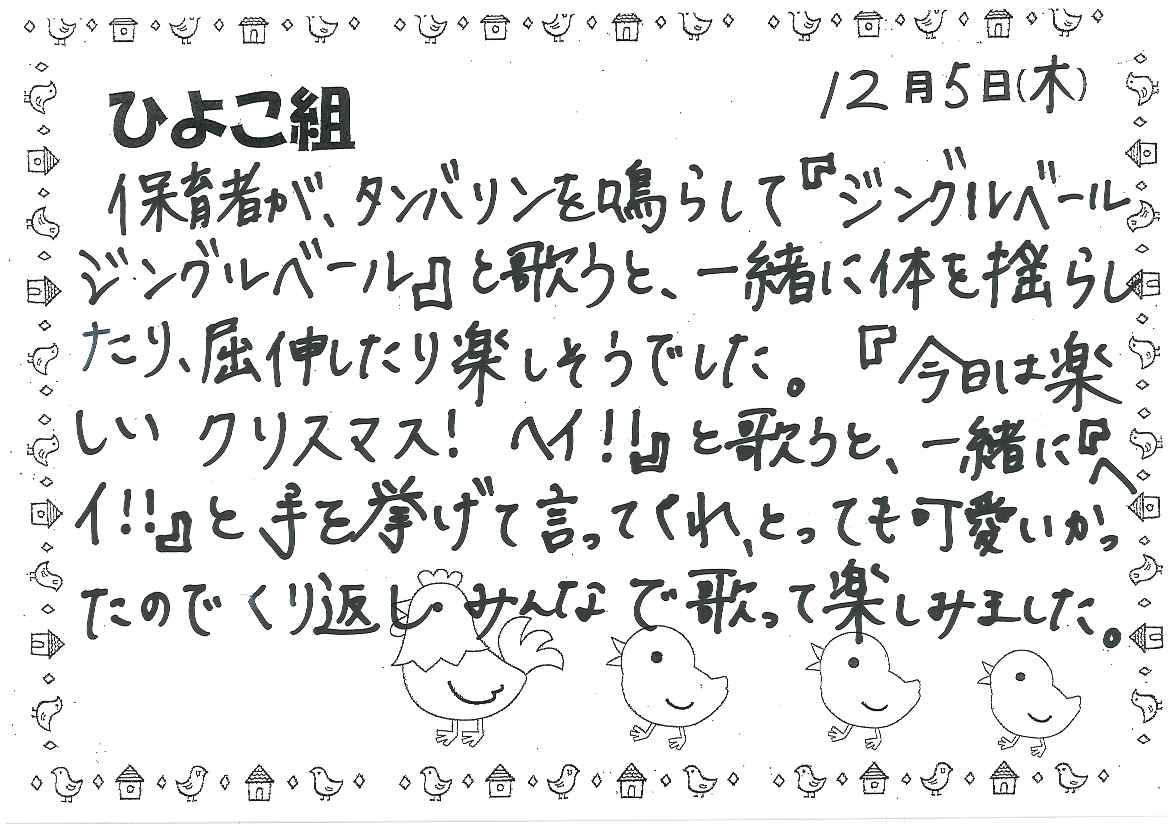 12月5日(木)
ひよこ組
保育者が、タンバリンを鳴らして『ジングルベール
ジングルベール』と歌うと、一緒に体を揺らし
たり、屈伸したり楽しそうでした。『今日は楽
しい クリスマス! ヘイ!!』と歌うと、一緒に『ヘ
イ!!』と手を挙げて言ってくれ、とっても可愛いかっ
たのでくり返しみんなで歌って楽しみました。